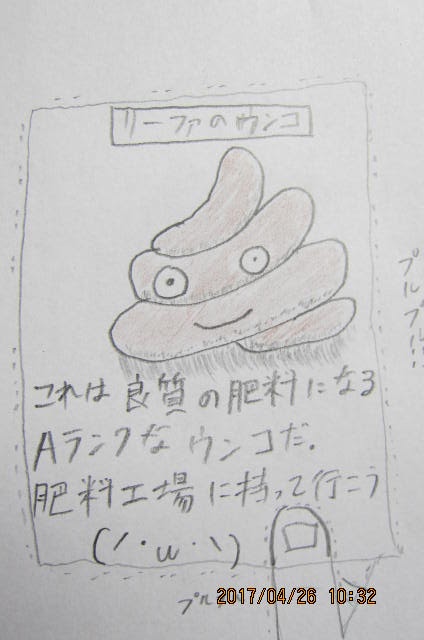 リーファのウンコ
これは良質の肥料になる
Aランクなウンコだ.
肥料工場に持って行こう
(ﾉ･ω･＼)
プルプル…
2017/04/26 10:32